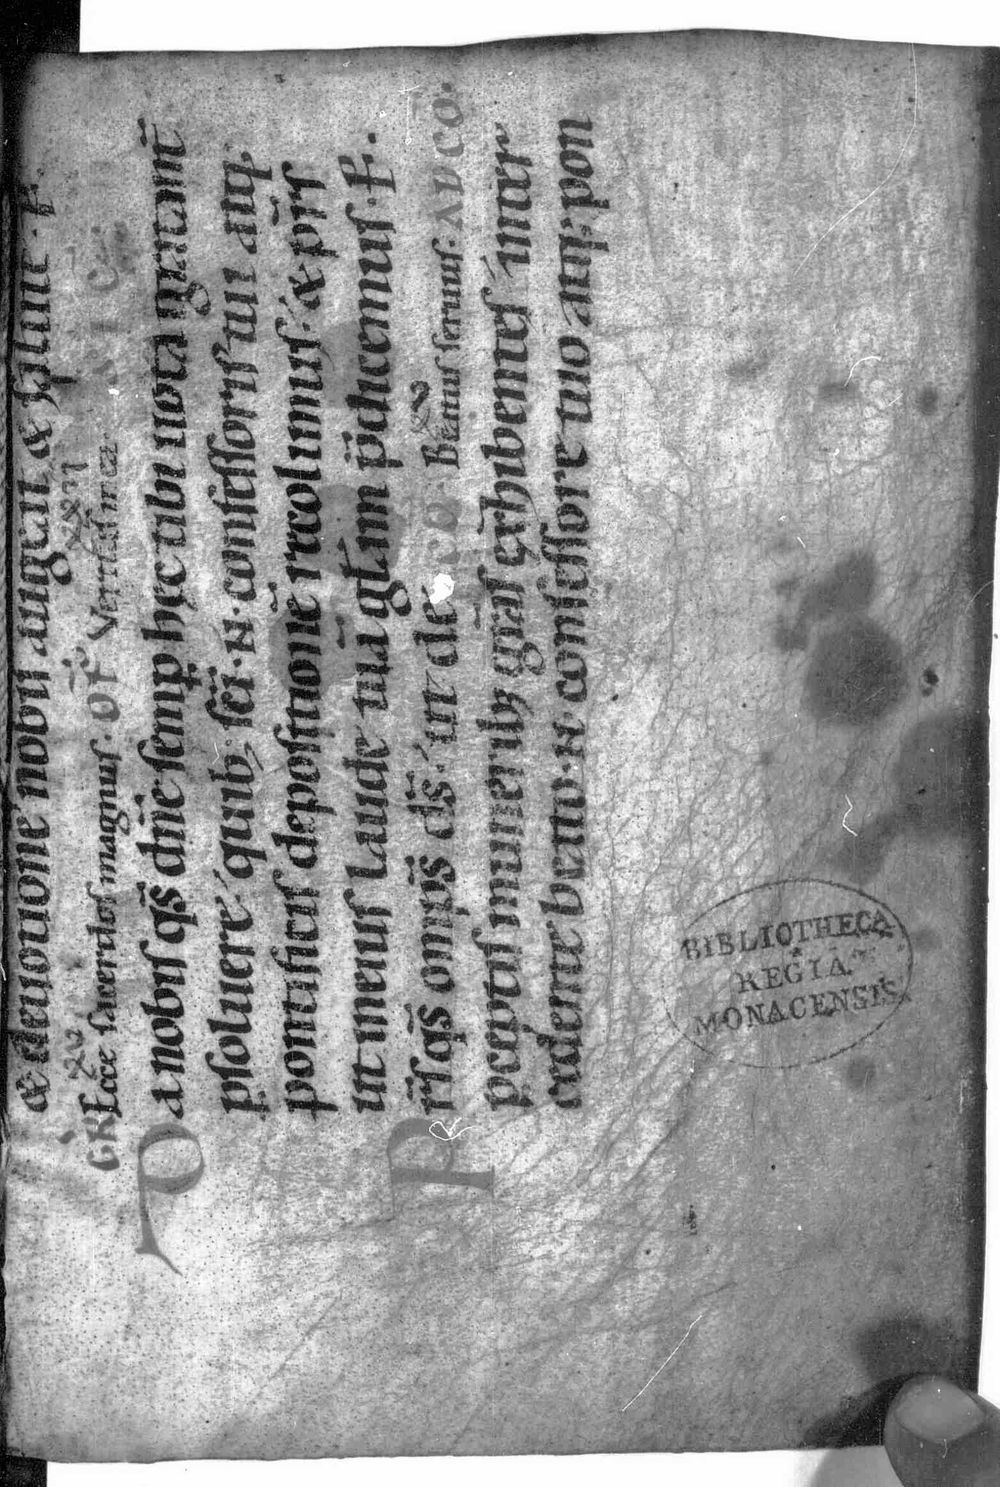 & deuotione nobis augeat. & salute. P.
GR Ecce sacerdos magnus. Of Veritas mea.
Da nobis qs dne semp hęc tibi uota gratant
psoluere. quib; sci .N. confessoris tui atq;
pontificis depositione recolimus. & psis
in meis laude tua gtam pdicemus. P.
Prs qs omps ds. ut de CO Beatus seruus. AD CO.
pceptis muneribus grãs exhibentes. inter
cedente beato .N. confessore tuo atq; pon
BIBLIOTHECA
REGIA
MONACENSIS